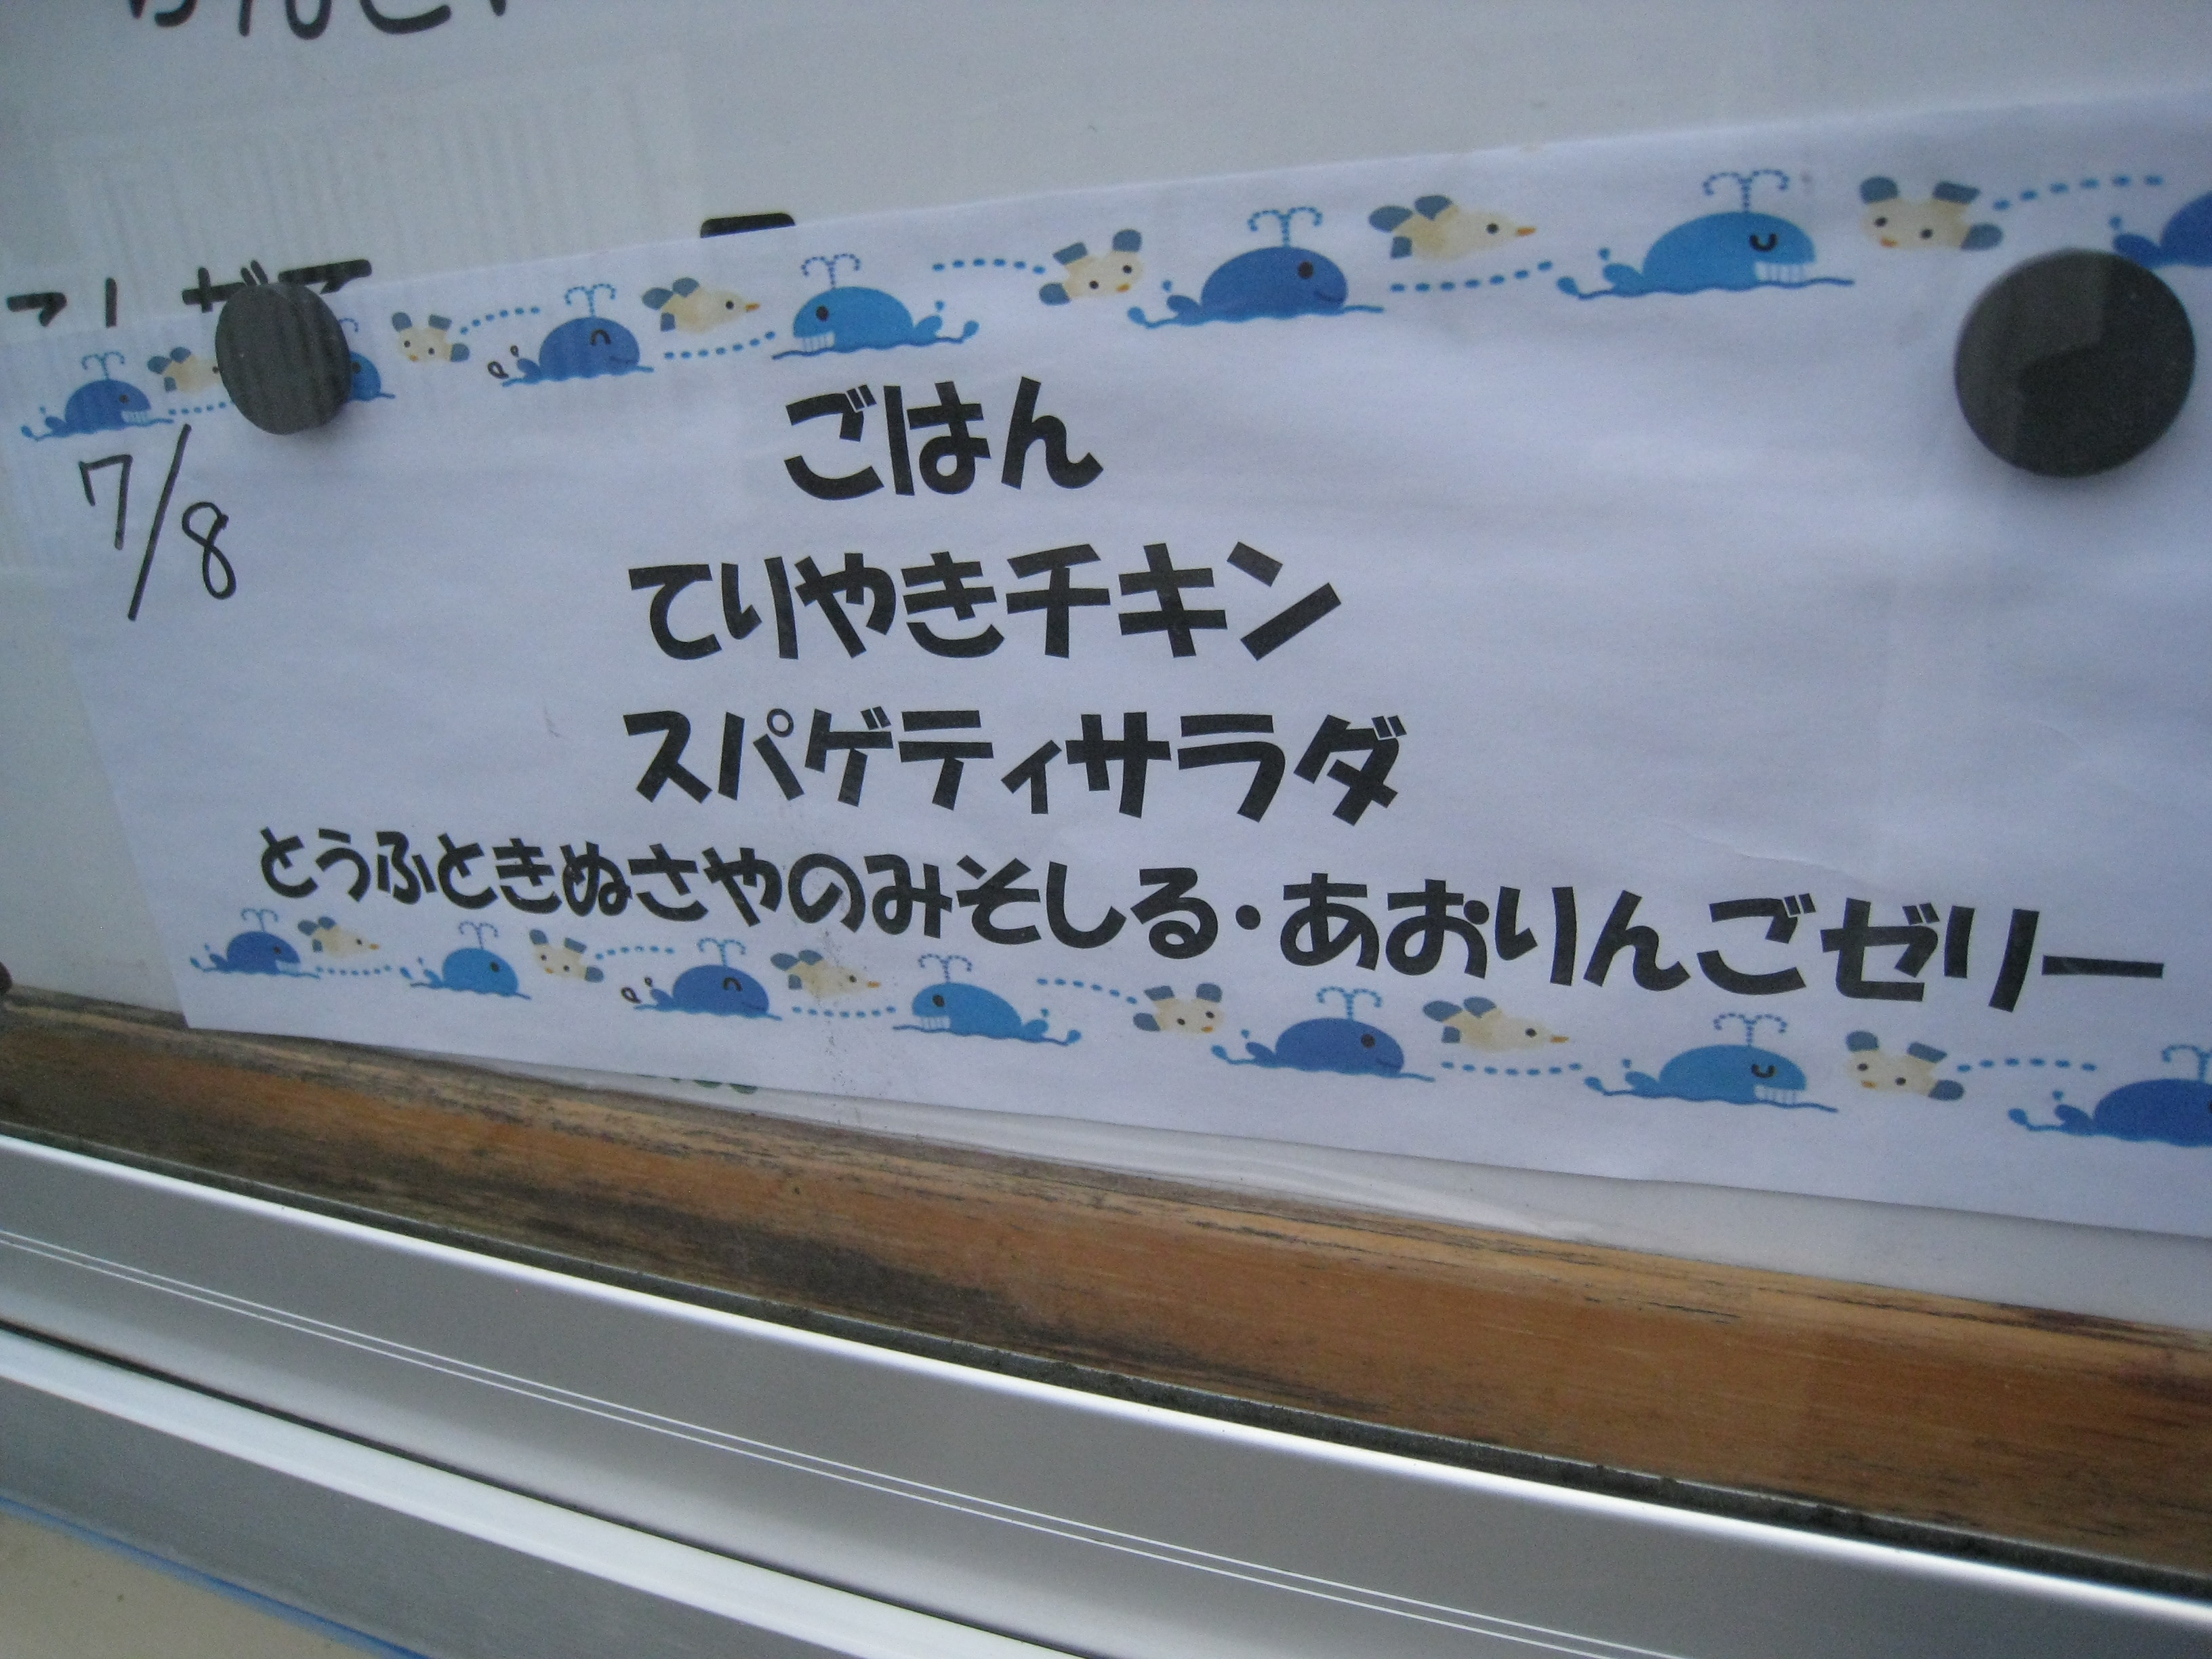 7/8
ごはん
てりやきチキン
スパゲティサラダ
とうふときぬさやのみそしる・あおりんごゼリー